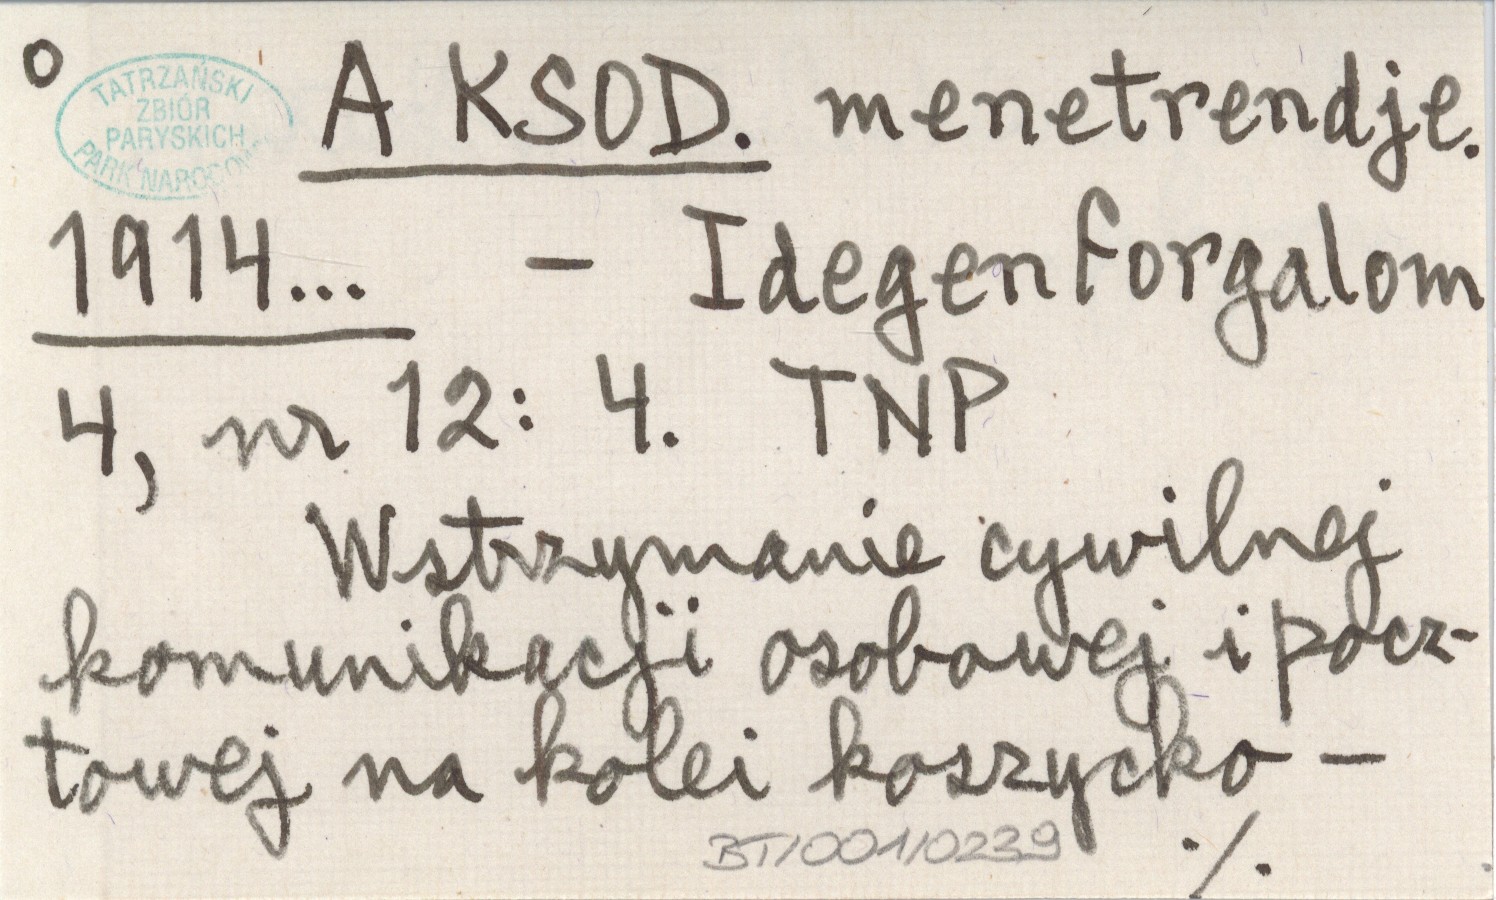 o
TATRZAŃSKI
ZBIÓR
PARYSKICH
PARK NARODOWY
A KSOD. menetrendje.
1914... – Idegenforgalom
4, nr 12: 4. TNP
Wstrzymanie cywilnej
komunikacji osobowej i pocz-
towej na kolei koszycko –
BT/001/0239
./.